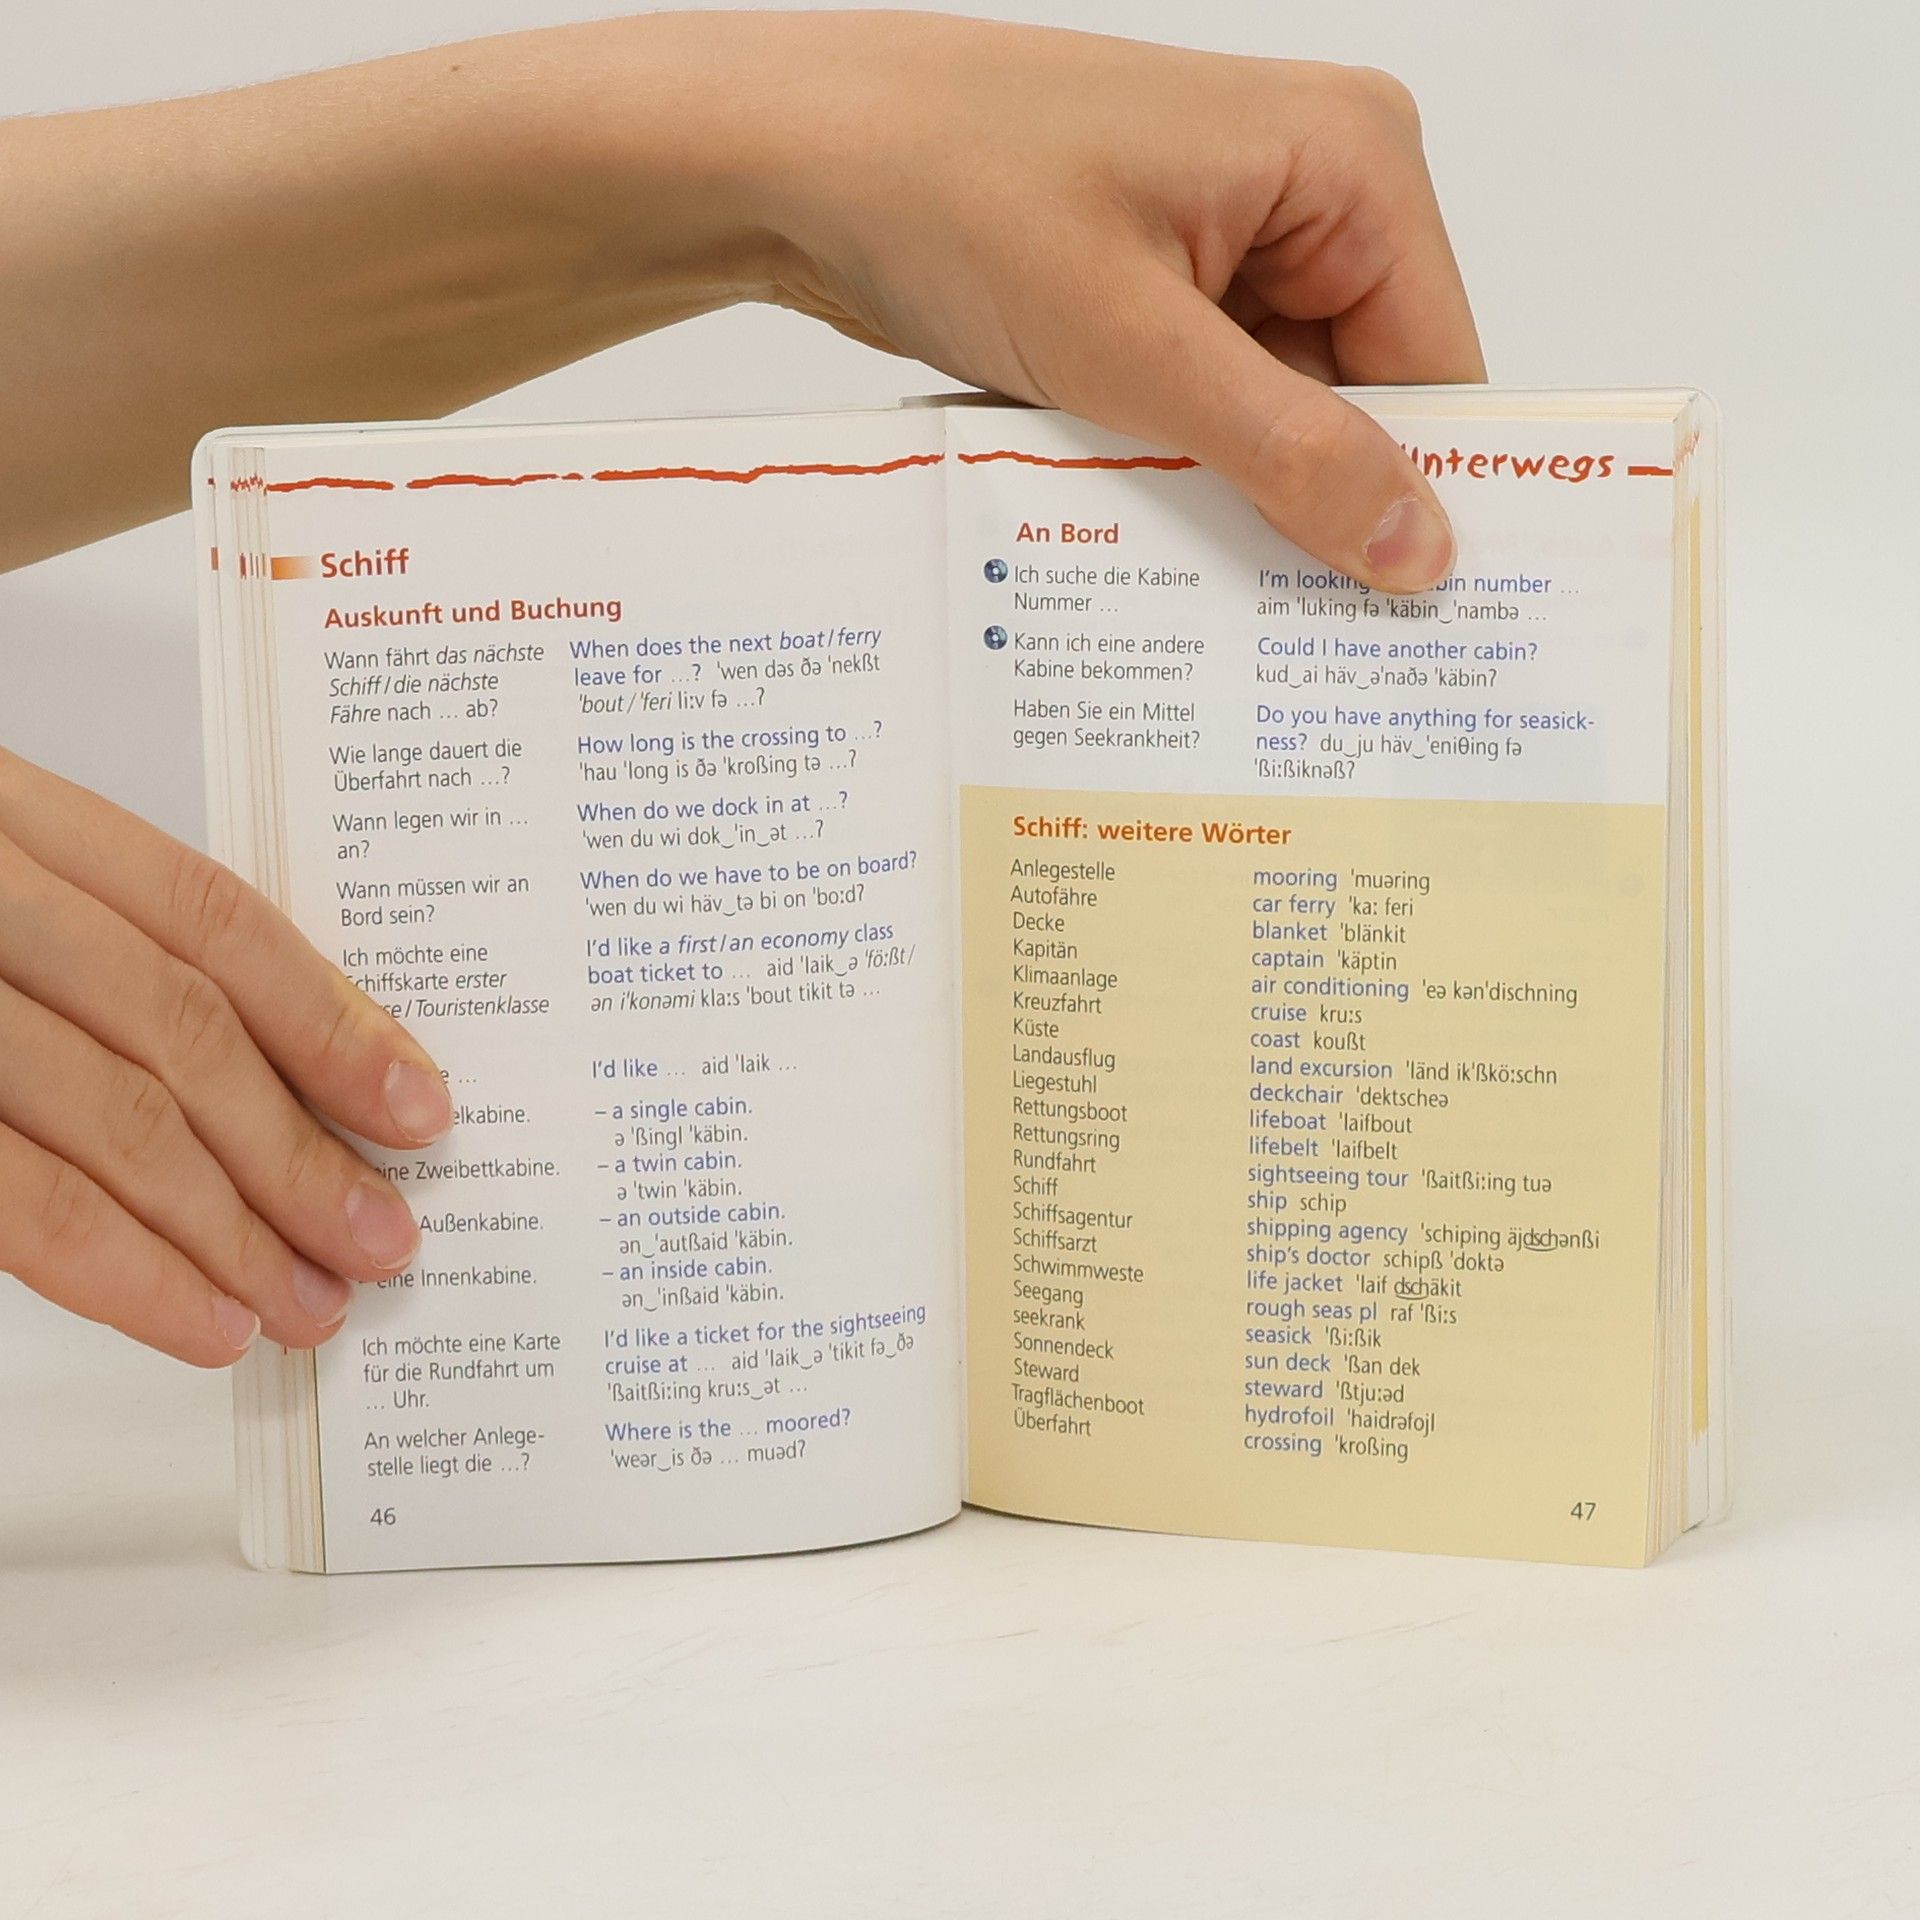 Schiff
Auskunft und Buchung
Wann fährt das nächste
Schiff/die nächste
Fähre nach ... ab?
When does the next boat/ferry
leave for ...? 'wen dəs ðə 'nekßt
'bout/'feri li:v fə ...?
Wie lange dauert die
Überfahrt nach ...?
How long is the crossing to ...?
'hau 'long is ðə 'kroßing tə ...?
Wann legen wir in ...
an?
When do we dock in at ...?
'wen du wi dok‿'in‿ət ...?
Wann müssen wir an
Bord sein?
When do we have to be on board?
'wen du wi häv‿tə bi on 'bo:d?
Ich möchte eine
erster
/Touristenklasse
I'd like a first/an economy class
boat ticket to ... aid 'laik‿ə 'fö:ßt/
ən i'konəmi kla:s 'bout tikit tə ...
...
I'd like ... aid 'laik ...
– a single cabin.
ə 'ßingl 'käbin.
Zweibettkabine.
– a twin cabin.
ə 'twin 'käbin.
Außenkabine.
– an outside cabin.
ən‿'autßaid 'käbin.
– eine Innenkabine.
– an inside cabin.
ən‿'inßaid 'käbin.
Ich möchte eine Karte
für die Rundfahrt um
... Uhr.
I'd like a ticket for the sightseeing
cruise at ... aid 'laik‿ə 'tikit fə‿ðə
'ßaitßi:ing kru:s‿ət ...
An welcher Anlege-
stelle liegt die ...?
Where is the ... moored?
'weər‿is ðə ... muəd?
46
Unterwegs
An Bord
Ich suche die Kabine
Nummer ...
I'm looking number ...
aim 'luking fə 'käbin‿'nambə ...
Kann ich eine andere
Kabine bekommen?
Could I have another cabin?
kud‿ai häv‿ə'naðə 'käbin?
Haben Sie ein Mittel
gegen Seekrankheit?
Do you have anything for seasick-
ness? du‿ju häv‿'eniθing fə
'ßi:ßiknəß?
Schiff: weitere Wörter
Anlegestelle mooring 'muəring
Autofähre car ferry 'ka: feri
Decke blanket 'blänkit
Kapitän captain 'käptin
Klimaanlage air conditioning 'eə kən'dischning
Kreuzfahrt cruise kru:s
Küste coast koußt
Landausflug land excursion 'länd ik'ßkö:schn
Liegestuhl deckchair 'dektscheə
Rettungsboot lifeboat 'laifbout
Rettungsring lifebelt 'laifbelt
Rundfahrt sightseeing tour 'ßaitßi:ing tuə
Schiff ship schip
Schiffsagentur shipping agency 'schiping äjdschənßi
Schiffsarzt ship's doctor schipß 'doktə
Schwimmweste life jacket 'laif dschäkit
Seegang rough seas pl raf 'ßi:s
seekrank seasick 'ßi:ßik
Sonnendeck sun deck 'ßan dek
Steward steward 'ßtju:əd
Tragflächenboot hydrofoil 'haidrəfojl
Überfahrt crossing 'kroßing
47